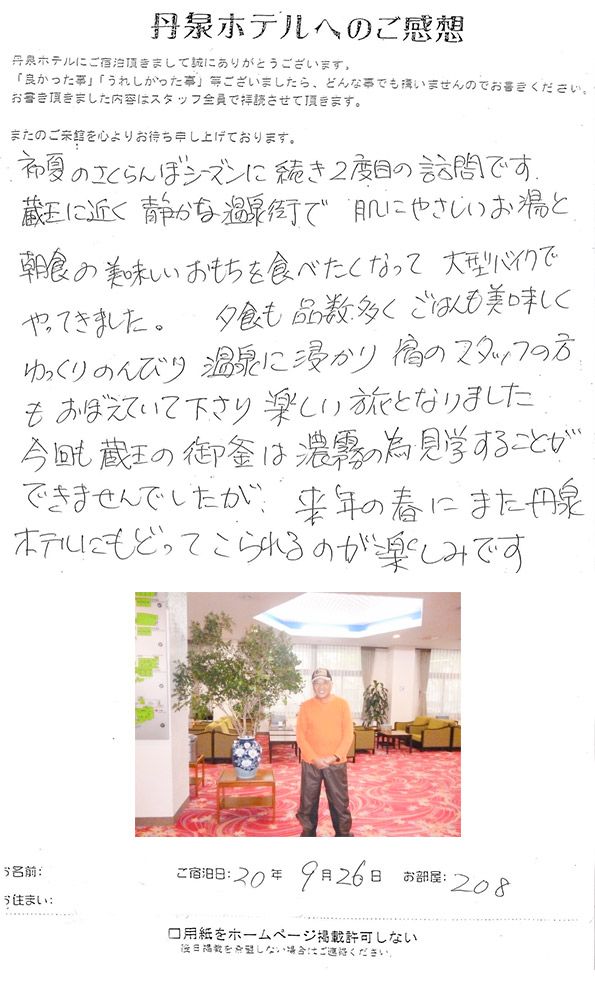 丹泉ホテルへのご感想
丹泉ホテルにご宿泊頂きまして誠にありがとうございます。
「良かった事」「うれしかった事」等ございましたら、どんな事でも構いませんのでお書きください。
お書き頂きました内容はスタッフ全員で拝読させて頂きます。
またのご来館を心よりお待ち申し上げております。
初夏のさくらんぼシーズンに続き2度目の訪問です.
蔵王に近く静かな温泉街で 肌にやさしいお湯と
朝食の美味しいおもちを食べたくなって 大型バイクで
やってきました。 夕食も品数多くごはんも美味しく
ゆっくりのんびり温泉に浸かり宿のスタッフの方
もおぼえていて下さり楽しい旅となりました
今回も蔵王の御釜は濃霧の為見学することが
できませんでしたが、来年の春にまた丹泉
ホテルにもどってこられるのが楽しみです
お名前: ご宿泊日:20年 9月26日 お部屋:208
お住まい:
□用紙をホームページ掲載許可しない
後日掲載を希望しない場合はご連絡ください。